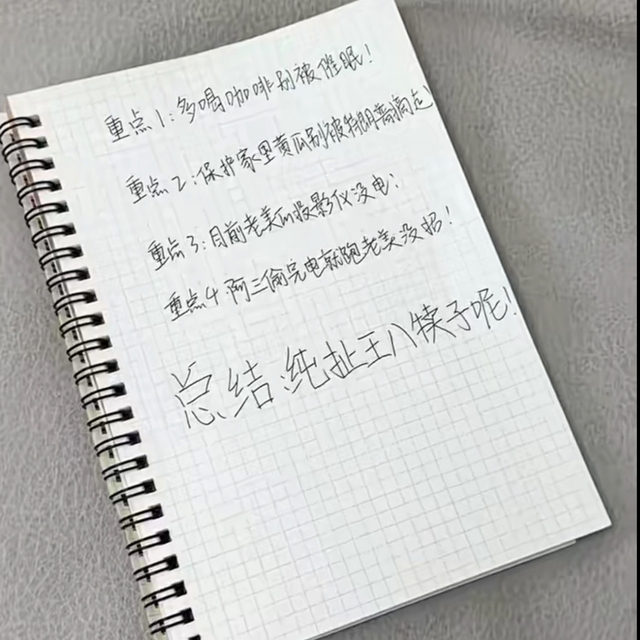 重点1:多喝咖啡别被催眠!
重点2:保护家里黄瓜别被外朋离摘走
重点3:目前老美的投影仪没电:
重点4 阿三偷完电瓶跑老美没招!
总结:纯扯王八犊子呢!